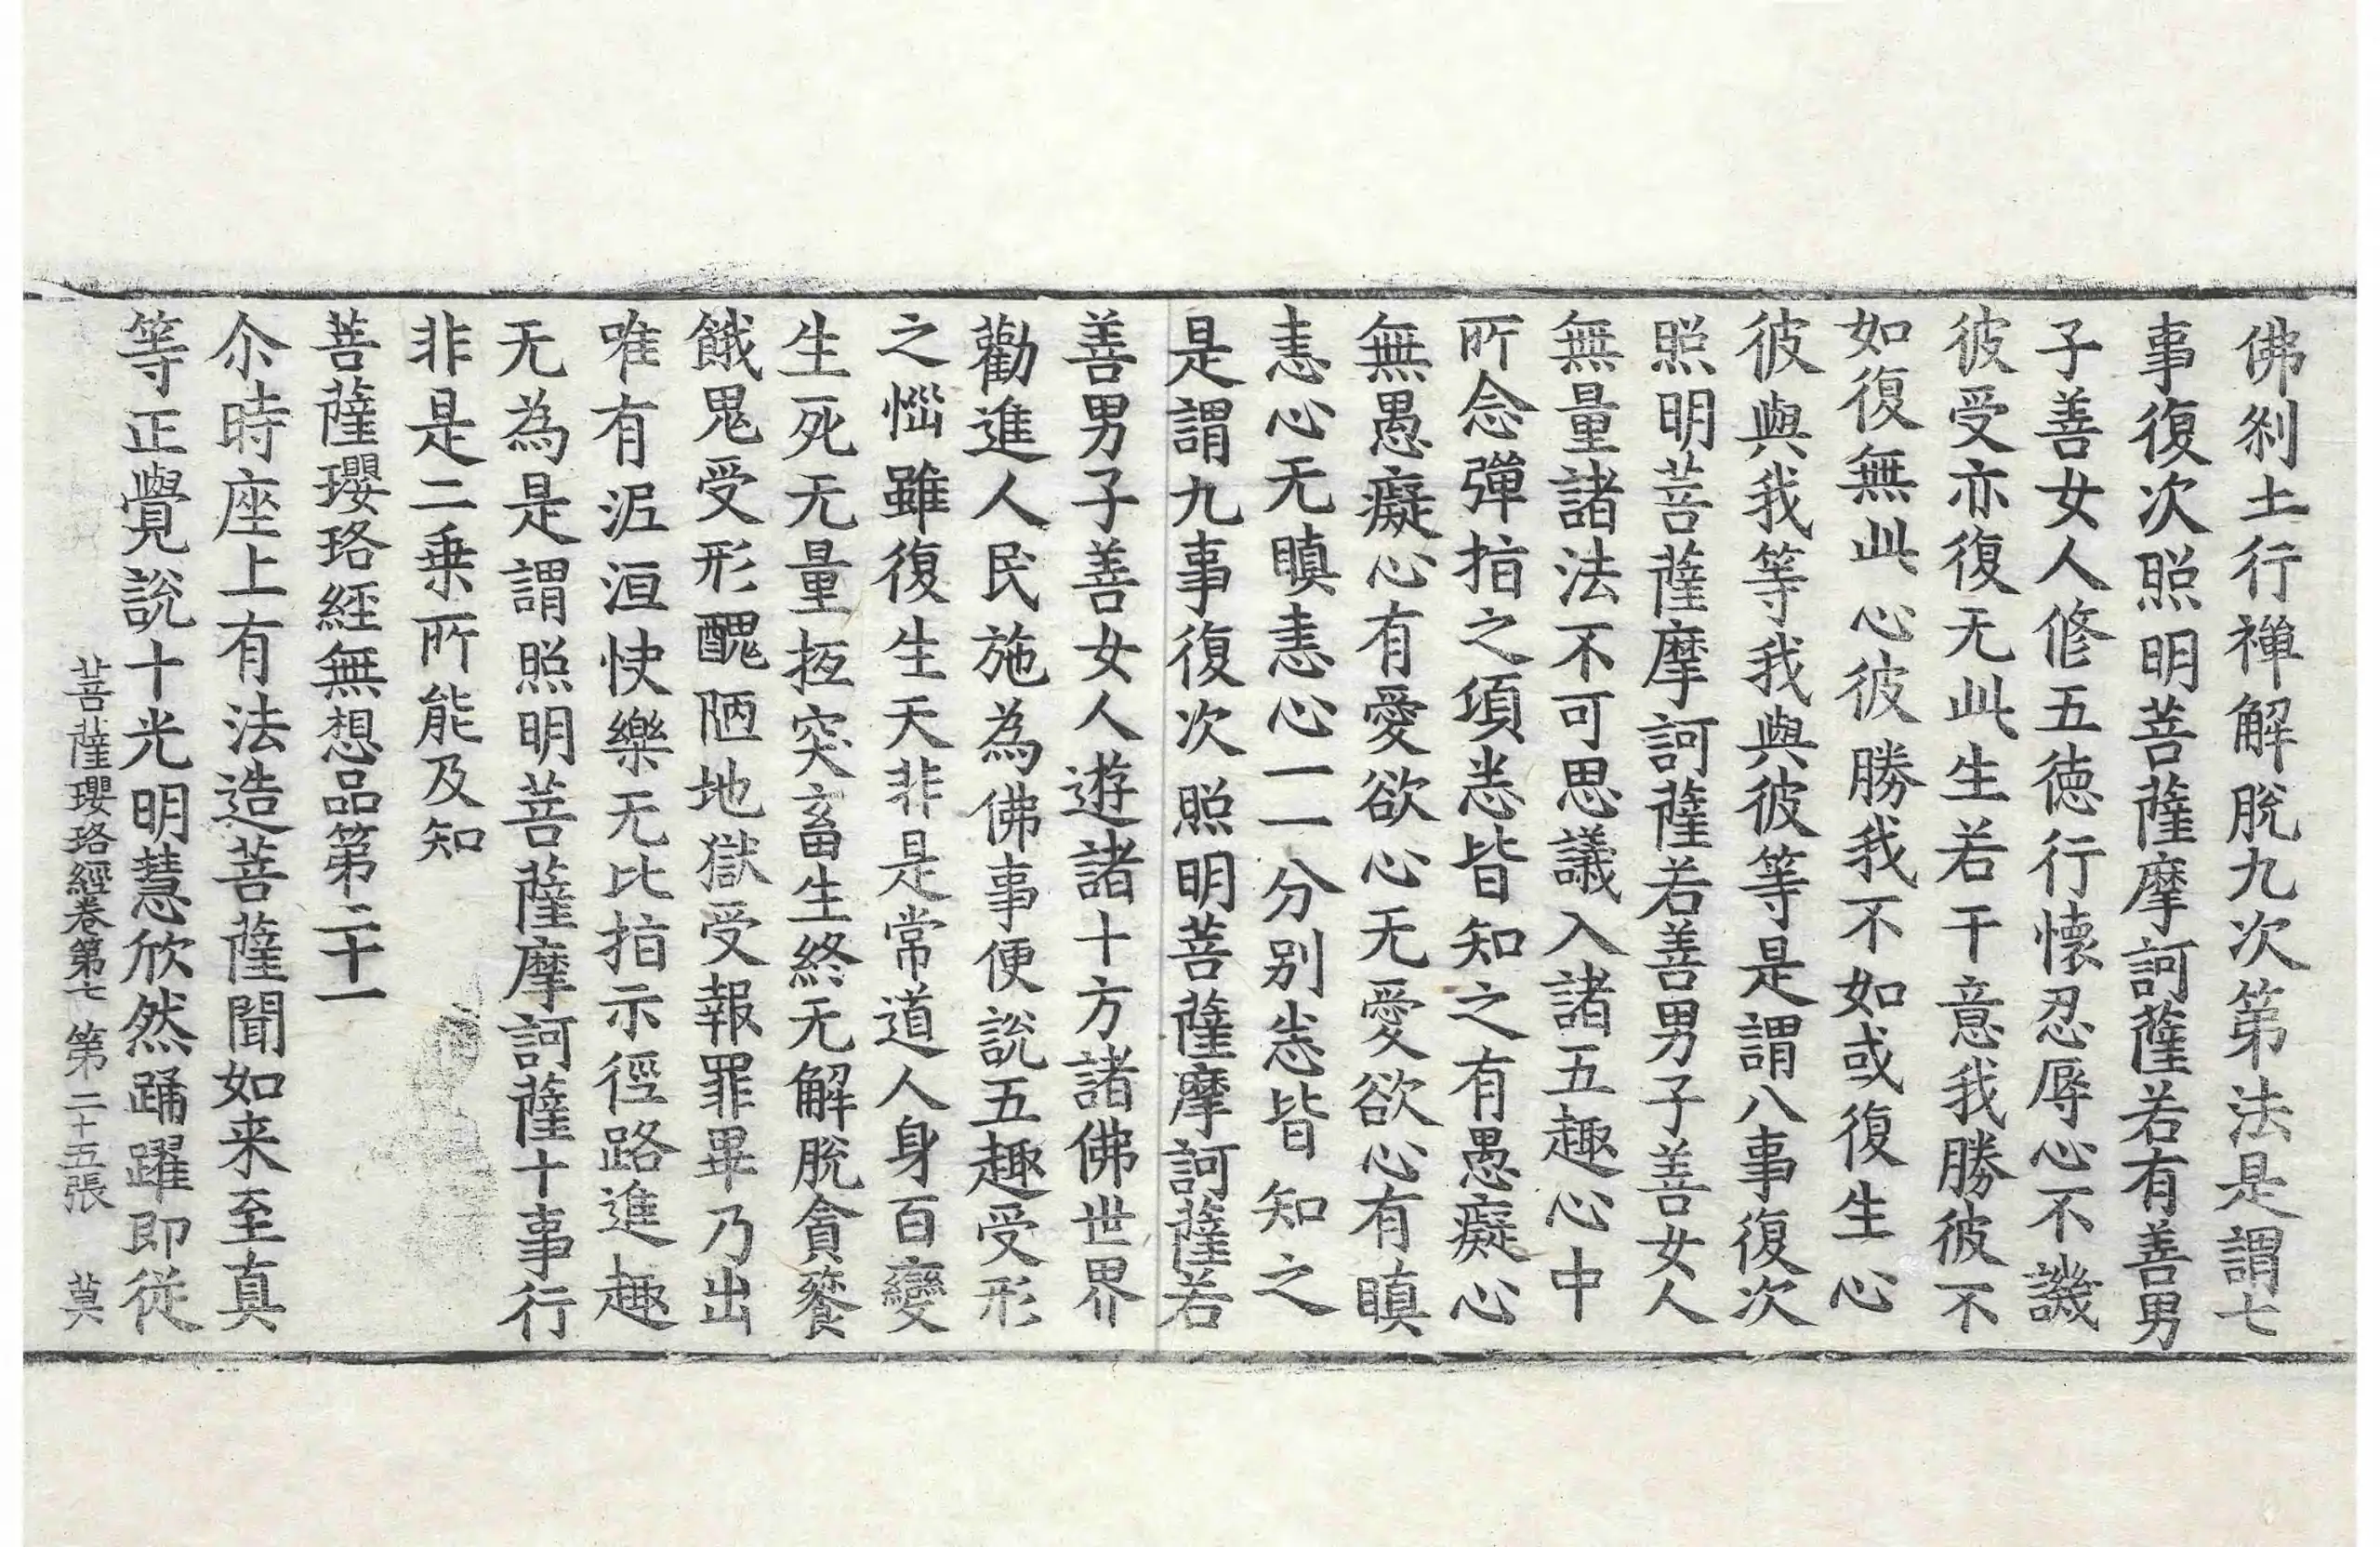 佛刹土行禅解脫九次第法是謂七
事復次照明菩薩摩訶薩若有善男
子善女人修五德行懷忍辱心不譏
彼受亦復无此生若干意我勝彼不
如復無此心彼勝我不如或復生心
彼與我等我與彼等是謂八事復次
照明菩薩摩訶薩若善男子善女人
無量諸法不可思議入諸五趣心中
所念彈指之項悉皆知之有愚癡心
無愚癡心有愛欲心无愛欲心有瞋
恚心无瞋恚心一一分別悉皆知之
是謂九事復次照明菩薩摩訶薩若
善男子善女人遊諸十方諸佛世界
勸進人民施為佛事便說五趣受形
之惱雖復生天非是常道人身百變
生死无量抂突畜生終无解脫貪餮
餓鬼受形醜陋地獄受報罪畢乃出
唯有泥洹快樂无比指示徑路進趣
无為是謂照明菩薩摩訶薩十事行
非是二乗所能及知
菩薩瓔珞經無想品第二十一
尒時座上有法造菩薩聞如来至真
等正覺說十光明慧欣然踊躍即從
菩薩瓔珞經卷第七 第二十五張 莫